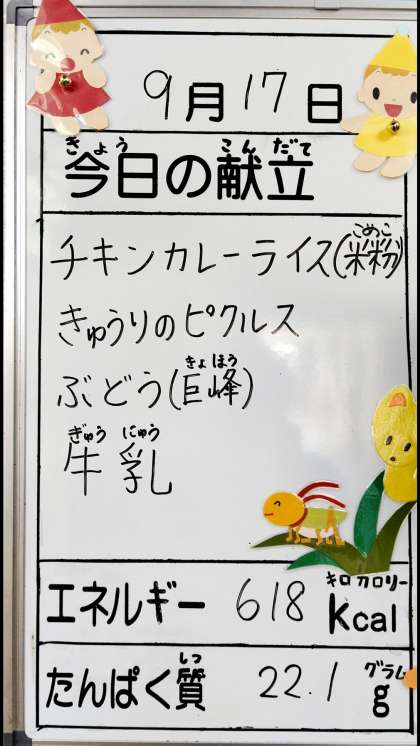 9月17日
きょう こんだて
今日の献立
こめこ
チキンカレーライス(米粉)
きゅうりのピクルス
きょ ほう
ぶどう(巨峰)
ぎゅう にゅう
牛乳
キロカロリー
エネルギー 618 kcal
しつ グラム
たんぱく質 22.1 g